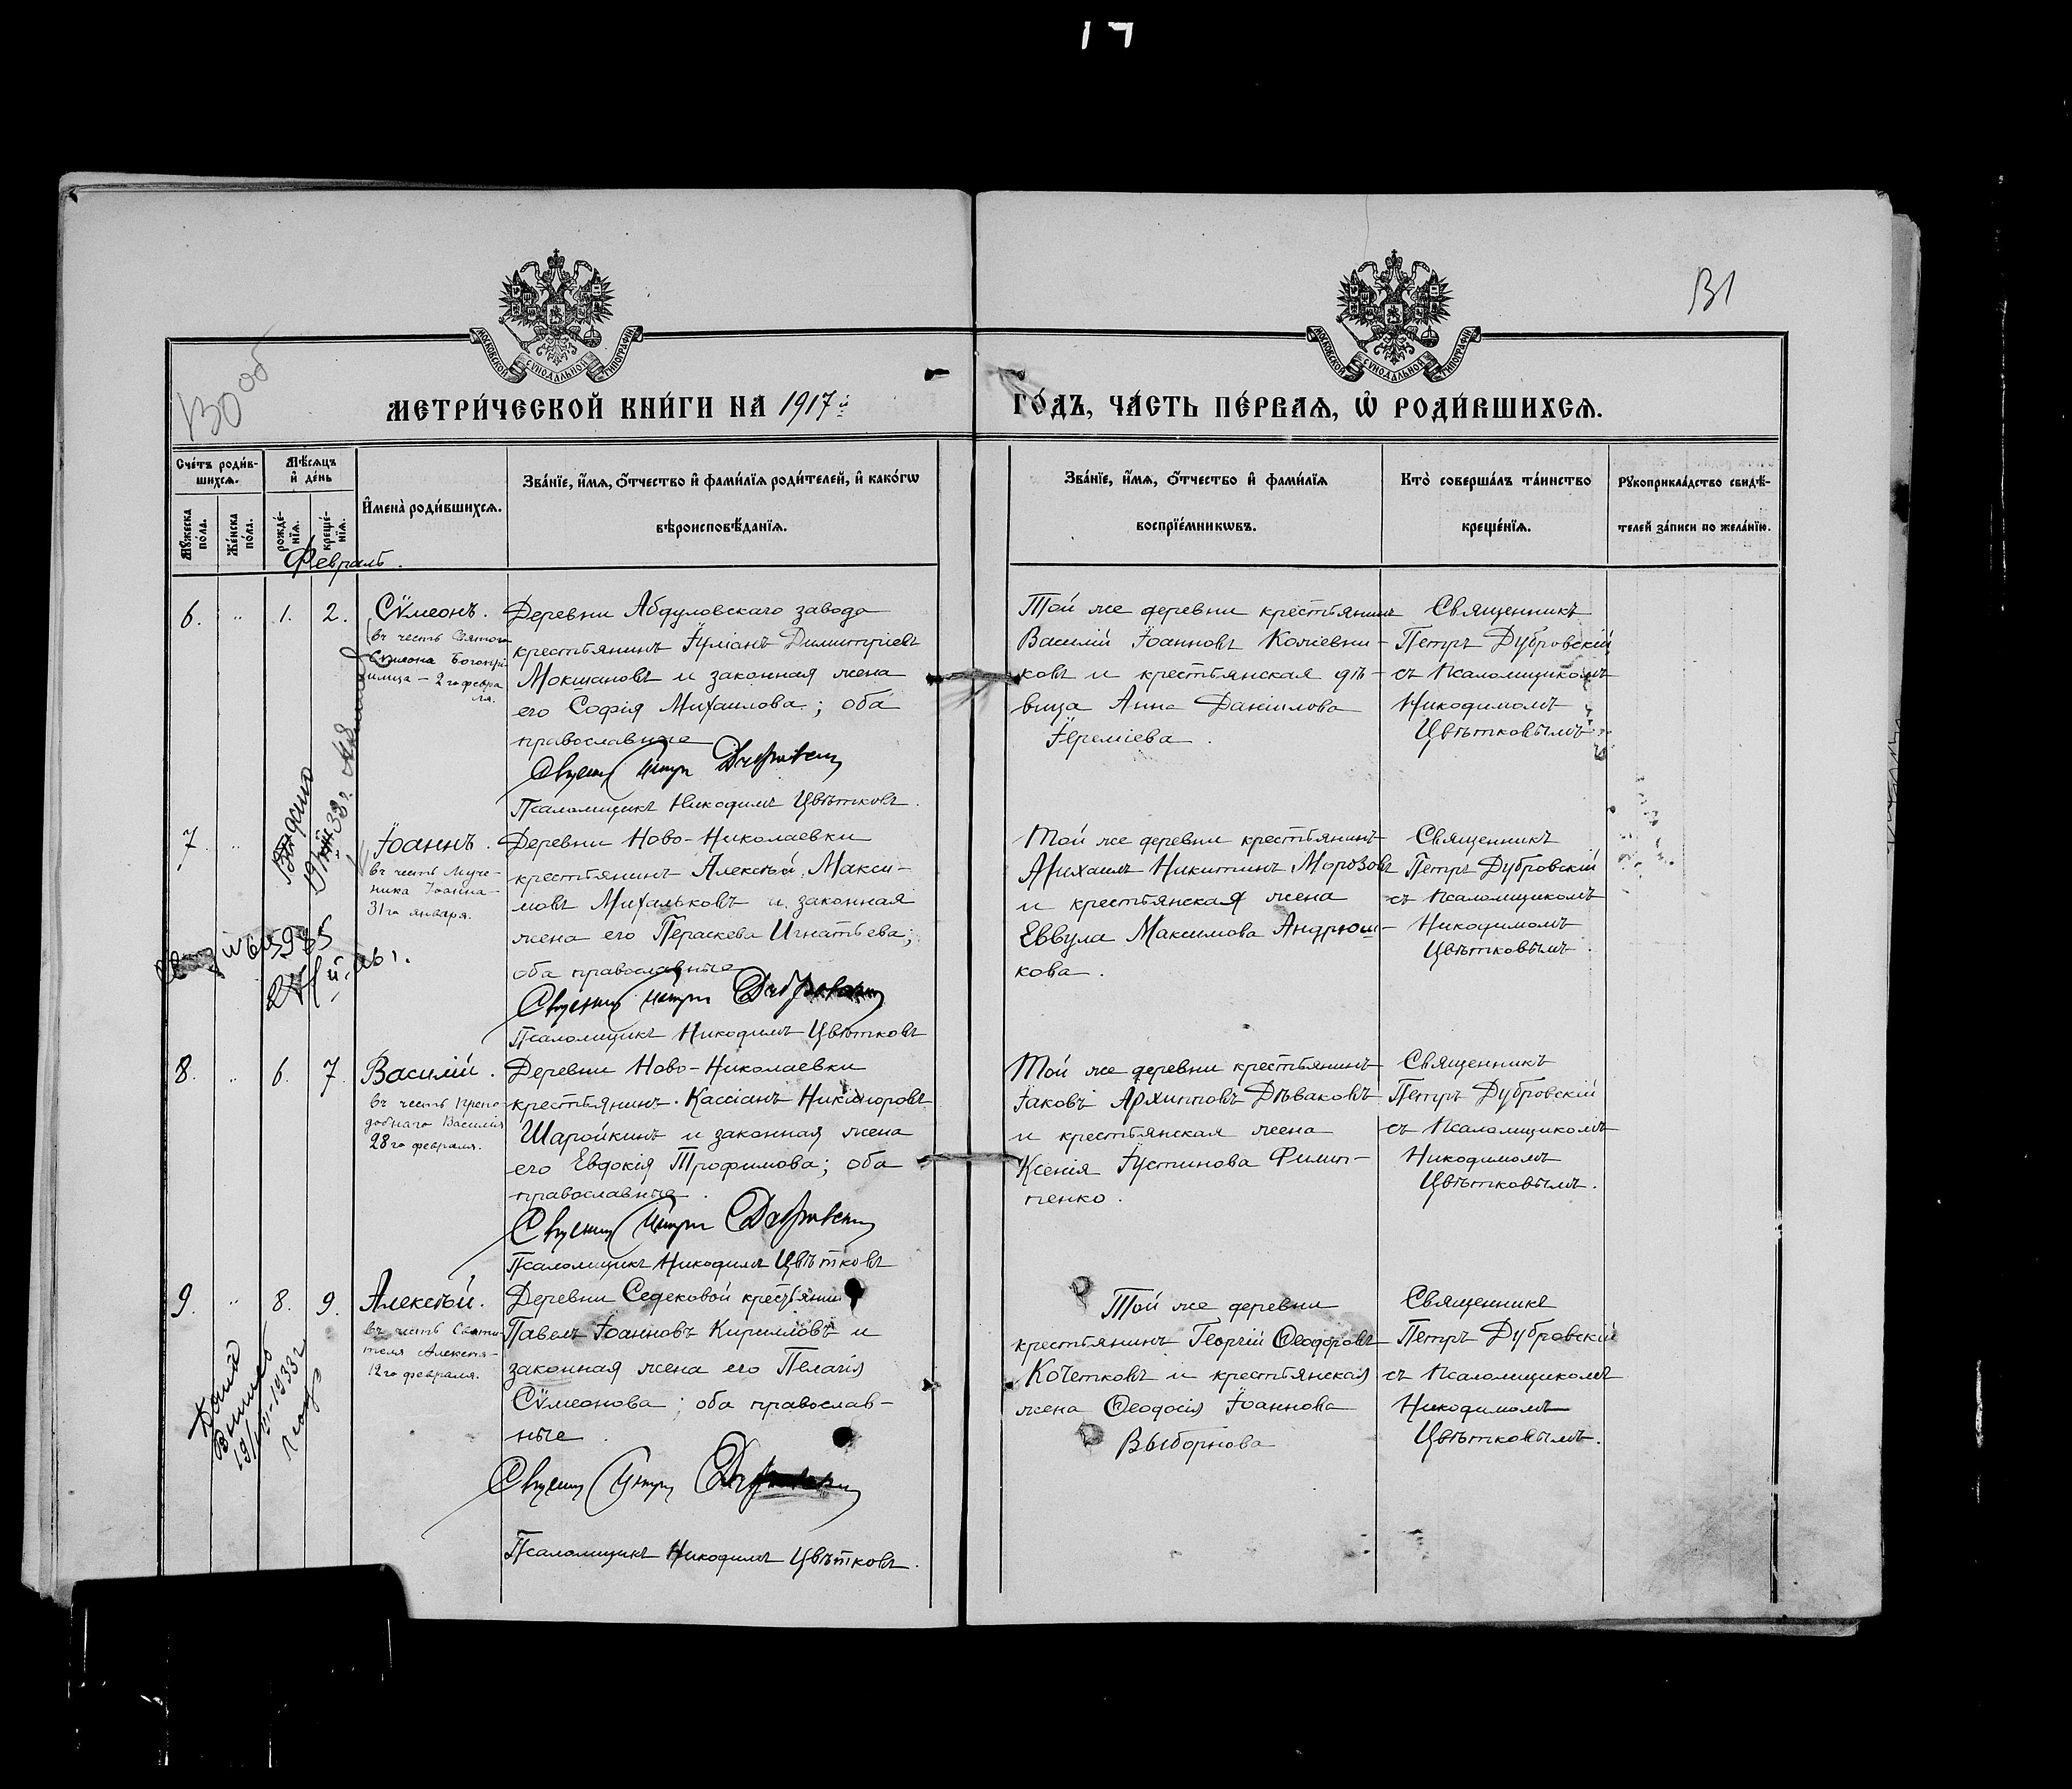 131
МОСКОВСКОЙ СѴНОДАЛЬНОЙ ТИПОГРАФІИ
МОСКОВСКОЙ СѴНОДАЛЬНОЙ ТИПОГРАФІИ
130 об
МЕТРИ́ЧЕСКОЙ КНИ́ГИ НА 1917й
ГО́ДЪ, ЧА́СТЬ ПЕ́РВАѦ, Ѡ҆ РОДИ́ВШИХСѦ.
Сче́тъ роди́в-
шихсѧ.
Мѣ́сѧцъ
и҆ де́нь
Мꙋ́жеска
по́ла.
Же́нска
по́ла.
рожде́-
нїѧ.
креще́-
нїѧ.
И҆мена̀ роди́вшихсѧ.
Зва́нїе, и҆́мѧ, ѻ҆́тчество и҆ фами́лїѧ роди́телей, и҆ како́гѡ
вѣроисповѣ́данїѧ.
Зва́нїе, и҆́мѧ, ѻ҆́тчество и҆ фами́лїѧ
воспрїе́мникѡвъ.
Кто̀ соверша́лъ та́инство
креще́нїѧ.
Рꙋкоприкла́дство свидѣ́-
телей за́писи по жела́нїю.
Февраль.
6. " 1. 2.
Сѵмеонъ.
въ честь Святого
Сѵмеона Богопрі-
имца – 2го февра
ля.
Деревни Абдуловскаго завода
крестьянинъ Іуліанъ Димитріевъ
Мокшановъ и законная жена
его Софія Михаилова; оба
православные
Псаломщикъ Никодимъ Цвѣтковъ.
Той же деревни крестьянинъ
Василій Іоанновъ Кожевни-
ковъ и крестьянская дѣ-
вица Анна Даніилова
Іереміева.
Священникъ
Петръ Дубровскій
съ Псаломщикомъ
Никодимомъ
Цвѣтковымъ
7. "
Іоаннъ.
въ честь Муче-
ника Іоанна –
31го января.
Деревни Ново-Николаевки
крестьянинъ Алексѣй Макси-
мовъ Михальковъ и законная
жена его Пераскева Игнатьева;
оба православные
Псаломщикъ Никодимъ Цвѣтковъ
Той же деревни крестьянинъ
Михаилъ Никитинъ Морозовъ
и крестьянская жена
Еввула Максимова Андрюш-
кова.
Священникъ
Петръ Дубровскій
съ Псаломщикомъ
Никодимомъ
Цвѣтковымъ.
8. " 6. 7.
Василій.
въ честь Препо-
добнаго Василія
28го февраля.
Деревни Ново-Николаевки
крестьянинъ Кассіанъ Никаноровъ
Шаройкинъ и законная жена
его Евдокія Трофимова; оба
православные.
Псаломщикъ Никодимъ Цвѣтковъ
Той же деревни крестьянинъ
Іаковъ Архиповъ Дѣваковъ
и крестьянская жена
Ксенія Іустинова Филип-
пенко.
Священникъ
Петръ Дубровскій
съ Псаломщикомъ
Никодимомъ
Цвѣтковымъ.
9. " 8. 9.
Алексѣй.
въ честь Святи-
теля Алексѣя –
12го февраля.
Деревни Седековой крестьянинъ
Павелъ Іоанновъ Кирилловъ и
законная жена его Пелагія
Сѵмеонова; оба православ-
ные.
Псаломщикъ Никодимъ Цвѣтковъ.
Той же деревни
крестьянинъ Георгій Ѳеодоровъ
Кочетковъ и крестьянская
жена Ѳеодосія Іоаннова
Выборнова
Священникъ
Петръ Дубровскій
съ Псаломщикомъ
Никодимомъ
Цвѣтковымъ.